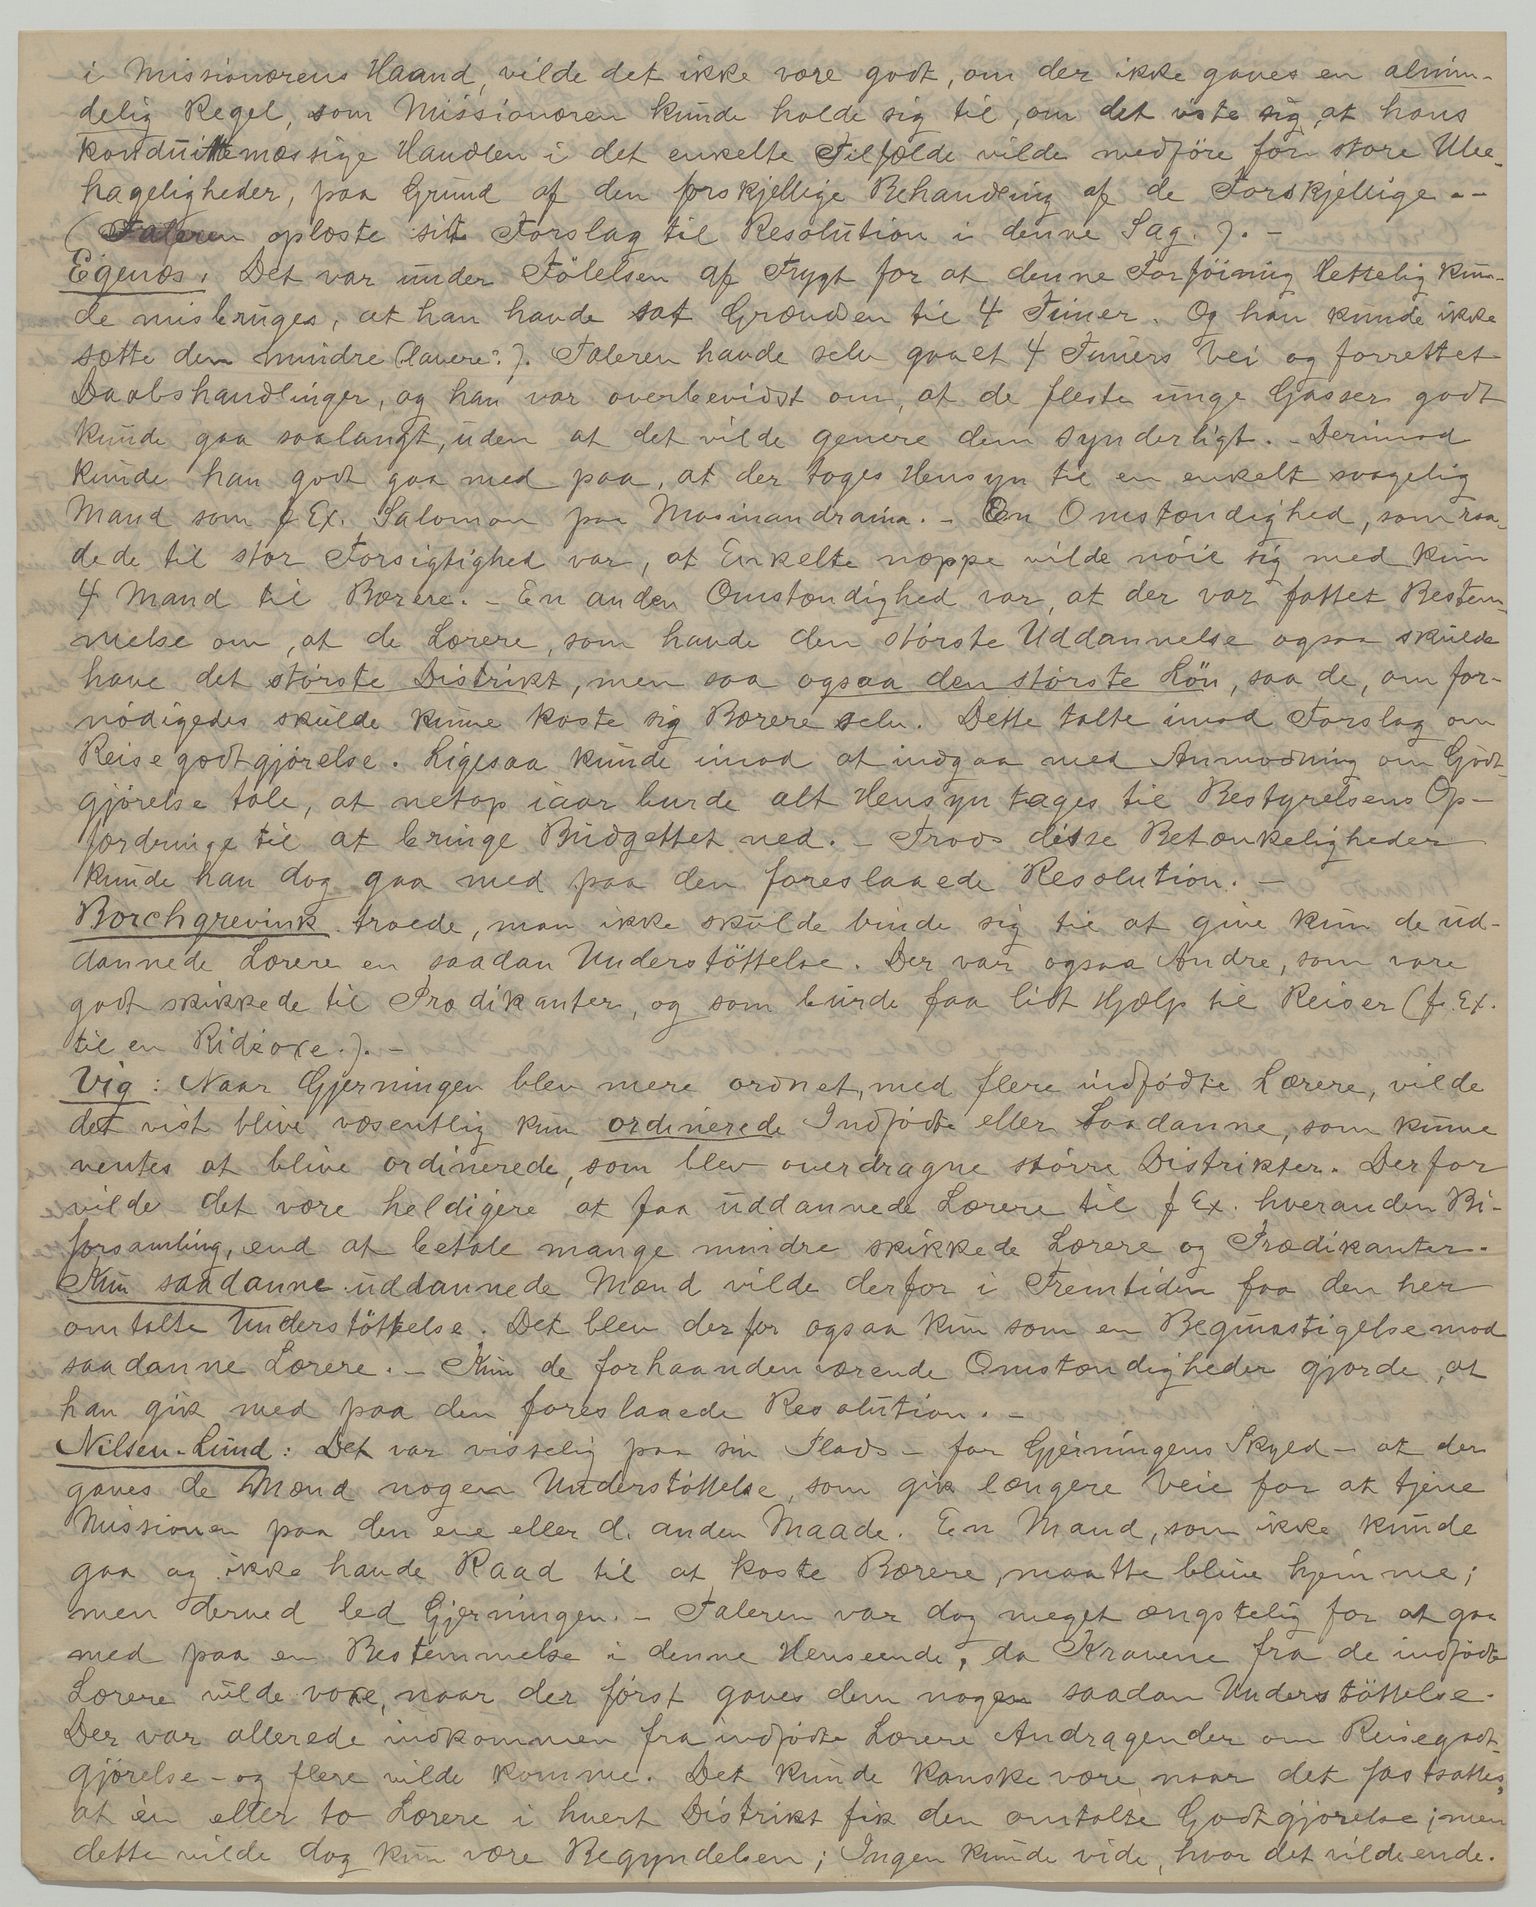 i Missionærens Haand, vilde det ikke være godt, om der ikke gaves en almin-
delig Regel, som Missionæren kunde holde sig til, om det viste sig, at hans
konduittemæssige Handlen i det enkelte Tilfælde vilde medføre for store Ube-
hageligheder, paa Grund af den forskjellige Behandling af de Forskjellige. -
(Taleren oplæste sit Forslag til Resolution i denne Sag.). -
Egenæs: Det var under Følelsen af Frygt for at denne Forføining lettelig kun-
de misbruges, at han havde sat Grændsen til 4 Timer. Og han kunde ikke
sætte den mindre (lavere?). Taleren havde selv gaaet 4 Timers Vei og forrettet
Daabshandlinger, og han var overbevidst om, at de fleste unge Gasser godt
kunde gaa saalangt, uden at det vilde genere dem synderligt. - Derimod
kunde han godt gaa med paa, at der toges Hensyn til en enkelt svagelig
Mand som f Ex. Salomon paa Masinandraina. - En Omstændighed, som raa-
dede til stor Forsigtighed var, at Enkelte næppe vilde nöie sig med kun
4 Mand til Bærere. - En anden Omstændighed var, at der var fattet Bestem-
melse om, at de Lærere, som havde den störste Uddannelse ogsaa skulde
have det störste Distrikt, men saa ogsaa den störste Lön, saa de, om for-
nödigedes skulde kunne koste sig Bærere selv. Dette talte imod Forslag om
Reisegodtgjörelse. Ligesaa kunde imod at indgaa med Anmodning om Godt-
gjörelse tale, at netop iaar burde alt Hensyn tages til Bestyrelsens Op-
fordringe til at bringe Budgettet ned. - Trods disse Betænkeligheder
kunde han dog gaa med paa den foreslaaede Resolution. -
Borchgrevink troede, man ikke skulde binde sig til at give kun de ud-
dannede Lærere en saadan Understöttelse. Der var ogsaa Andre, som vare
godt skikkede til Prædikanter, og som burde faa lidt Hjælp til Reiser (f. Ex.
til en Rideoxe.). -
Vig: Naar Gjerningen blev mere ordnet, med flere indfödte Lærere, vilde
det vist blive væsentlig kun ordinerede Indfödte eller Saadanne, som kunne
ventes at blive ordinerede, som blev overdragne större Distrikter. Derfor
vilde det være heldigere at faa uddannede Lærere til f Ex. hveranden Bi-
forsamling, end at betale mange mindre skikkede Lærere og Prædikanter.
Kun saadanne uddannede Mænd vilde derfor i Fremtiden faa den her
omtalte Understöttelse. Det blev derfor ogsaa kun som en Begunstigelse mod
saadanne Lærere. - Kun de forhaandenværende Omstændigheder gjorde, at
han gik med paa den foreslaaede Resolution. -
Nilsen-Lund: Det var visselig paa sin Plads - for Gjerningens Skyld - at der
gaves de Mænd nogen Understöttelse, som gik længere Veie for at tjene
Missionen paa den ene eller d. anden Maade. En Mand, som ikke kunde
gaa og ikke havde Raad til at koste Bærere, maatte blive hjemme;
men derved led Gjerningen. - Taleren var dog meget ængstelig for at gaa
med paa en Bestemmelse i denne Henseende, da Kravene fra de indfödte
Lærere vilde voxe, naar der först gaves dem nogen saadan Understöttelse.
Der var allerede indkommen fra indfödte Lærere Andragender om Reisegodt-
gjörelse - og flere vilde komme. Det kunde kanske være, naar det fastsattes,
at én eller to Lærere i hvert Distrikt fik den omtalte Godtgjörelse; men
dette vilde dog kun være Begyndelsen; Ingen kunde vide, hvor det vilde ende.